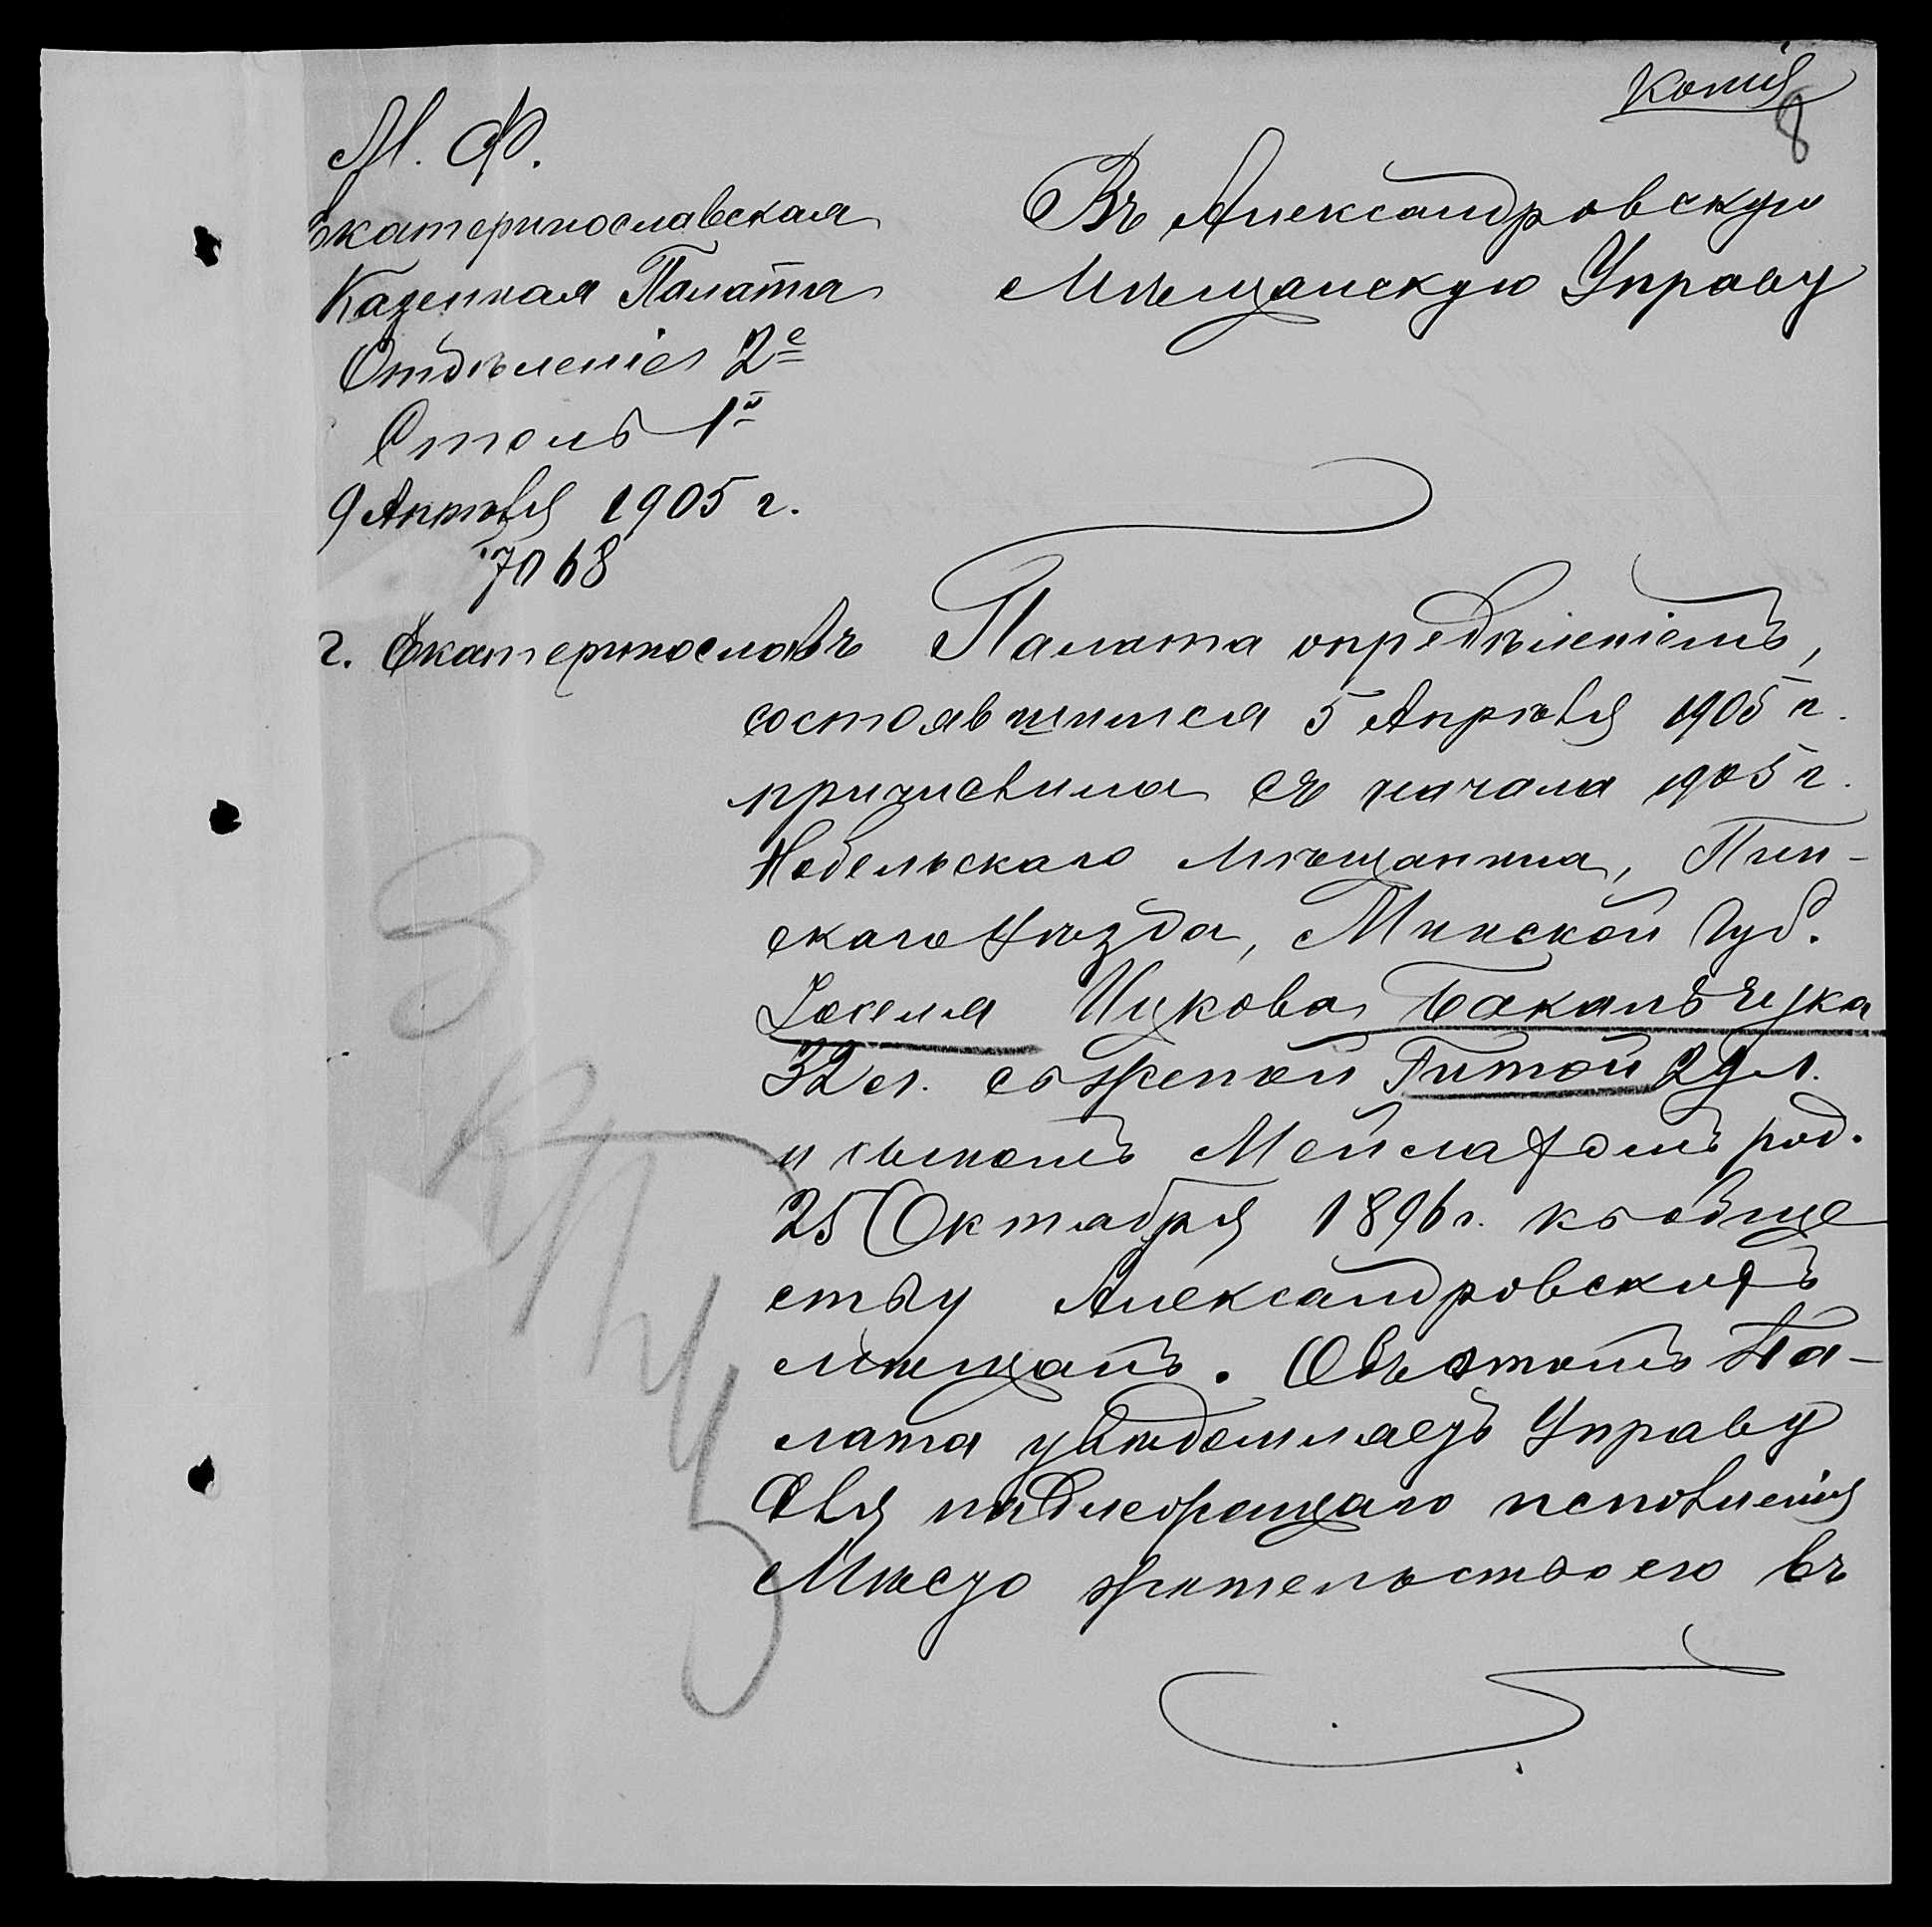 Копія
8
М. Ф.
Екатеринославская
Казенная Палата
Отдѣленіе 2е
Столъ 1й
9 Апрѣля 1905 г.
7068
г. Екатеринославъ
Въ Александровскую
Мѣщанскую Управу
Палата опредѣленіемъ,
состоявшимся 5 Апрѣля 1905 г.
причислила съ начала 1905 г.
Нобельскаго мѣщанина, Пин-
скаго уѣзда, Минской Губ.
Іоселя Ицкова Бакальчука
32 л. съ женой Гитой 29 л.
и сыномъ Мейлахомъ род.
25 Октября 1896 г. къ обще
ству Александровскихъ
мѣщанъ. Объ этомъ Па-
лата увѣдомляетъ Управу
для надлежащаго исполненія
Мѣсто жительство его въ